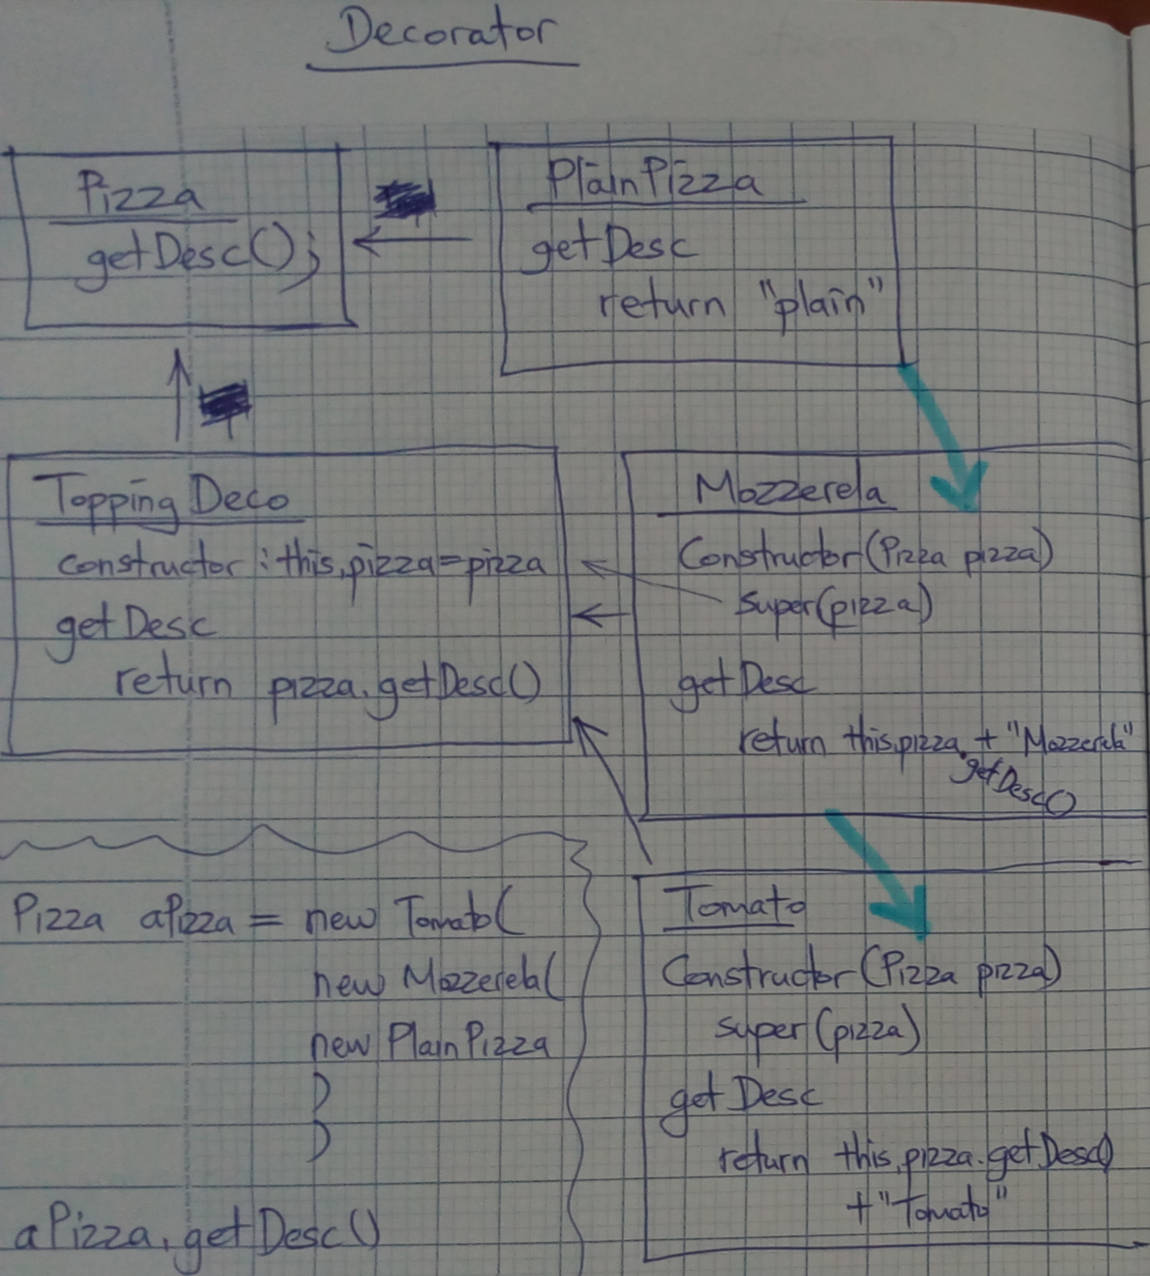 Decorator
Pizza
getDesc();
PlainPizza
getDesc
return "plain"
Topping Deco
constructor : this.pizza=pizza
getDesc
return pizza.getDesc()
Mozzerela
Constructor(Pizza pizza)
super(pizza)
getDesc
return this.pizza. + "Mozzerela"
getDesc()
Pizza aPizza = new Tomato(
new Mozzerela(
new PlainPizza
)
)
aPizza.getDesc()
Tomato
Constructor(Pizza pizza)
super(pizza)
getDesc
return this.pizza.getDesc()
+ "Tomato"